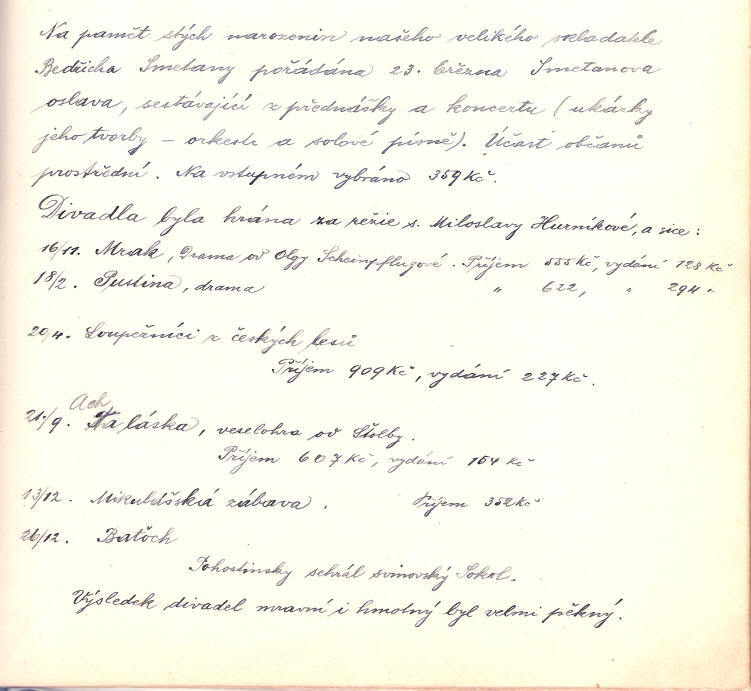 Na paměť stých narozenin našeho velikého skladatele
Bedřicha Smetany pořádána 23. března Smetanova
oslava, sestávající z přednášky a koncertu (ukázky
jeho tvorby – orkestr a solové písně). Účast občanů
prostřední. Na vstupném vybráno 359 Kč.
Divadla byla hrána za režie s. Miloslavy Hurníkové, a sice:
16/11. Mrak, Drama od Olgy Scheinpflugové. Příjem 555 Kč, vydání 128 Kč
18/2. Pustina, drama " 622, " 294 "
20/4. Loupežníci z českých lesů
Příjem 909 Kč, vydání 227 Kč.
Ach
21/9. Ta láska, veselohra od Štolby.
Příjem 607 Kč, vydání 154 Kč
13/12. Mikulášská zábava. Příjem 352 Kč
26/12. Batoch
Pohostinsky sehrál svinovský Sokol.
Výsledek divadel mravní i hmotný byl velmi pěkný.